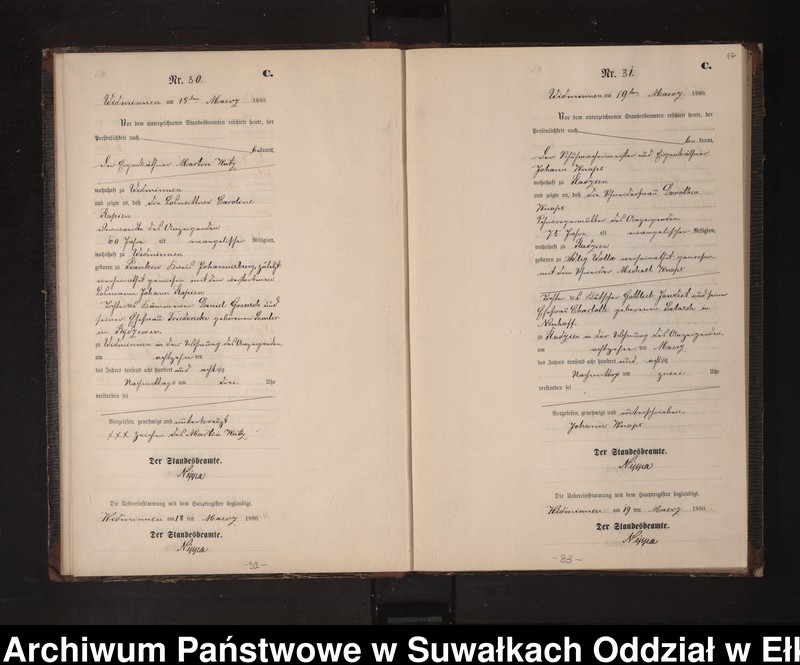 Nr. 30.
C.
Widminnen am 18ten Maerz 1880.
Vor dem unterzeichneten Standesbeamten erschien heute, der
Persönlichkeit nach
bekannt,
der Eigenkäthner Martin
wohnhaft zu Widminnen
und zeigte an, daß die Caroline
Kapien
des Anzeigenden
60 Jahre alt evangelischer Religion,
wohnhaft zu Widminnen
geboren zu Kreis Johannisburg, zuletzt
verheirathet gewesen mit dem verstorbenen
Johann Kapien
Tochter des Daniel und
seiner Ehefrau geborenen
in
zu Widminnen in der Wohnung des Anzeigenden
am achtzehnten
des Jahres tausend acht hundert und achtzig
Nachmittags um drei Uhr
verstorben sei
Vorgelesen, genehmigt und unterkreuzt
+++ Zeichen des Martin
Der Standesbeamte.
Nippa
Die Uebereinstimmung mit dem Hauptregister beglaubigt.
Widminnen am 18 ten Maerz 1880.
Der Standesbeamte.
Nippa
-32-
17
Nr. 31.
C.
Widminnen am 19ten Maerz 1880.
Vor dem unterzeichneten Standesbeamten erschien heute, der
Persönlichkeit nach
bekannt,
der Schuhmachermeister und Eigenkäthner
Johann Knaps
wohnhaft zu Radzien
und zeigte an, daß die Schneiderfrau Dorothea
Knaps
Schwiegermutter des Anzeigenden
75 Jahre alt evangelischer Religion,
wohnhaft zu Radzien
geboren zu Wolla verheirathet gewesen
mit dem Schneider Michael Knaps
Tochter des Gottlieb und seiner
Ehefrau Charlotte geborenen
Neuhoff
zu Radzien in der Wohnung des Anzeigenden
am achtzehnten Maerz
des Jahres tausend acht hundert und achtzig
Nachmittags um zwei Uhr
verstorben sei
Vorgelesen, genehmigt und unterschrieben
Johann Knaps
Der Standesbeamte.
Nippa
Die Uebereinstimmung mit dem Hauptregister beglaubigt.
Widminnen am 19 ten Maerz 1880.
Der Standesbeamte.
Nippa
-33-
Archiwum Państwowe w Suwałkach Oddział w Ełk